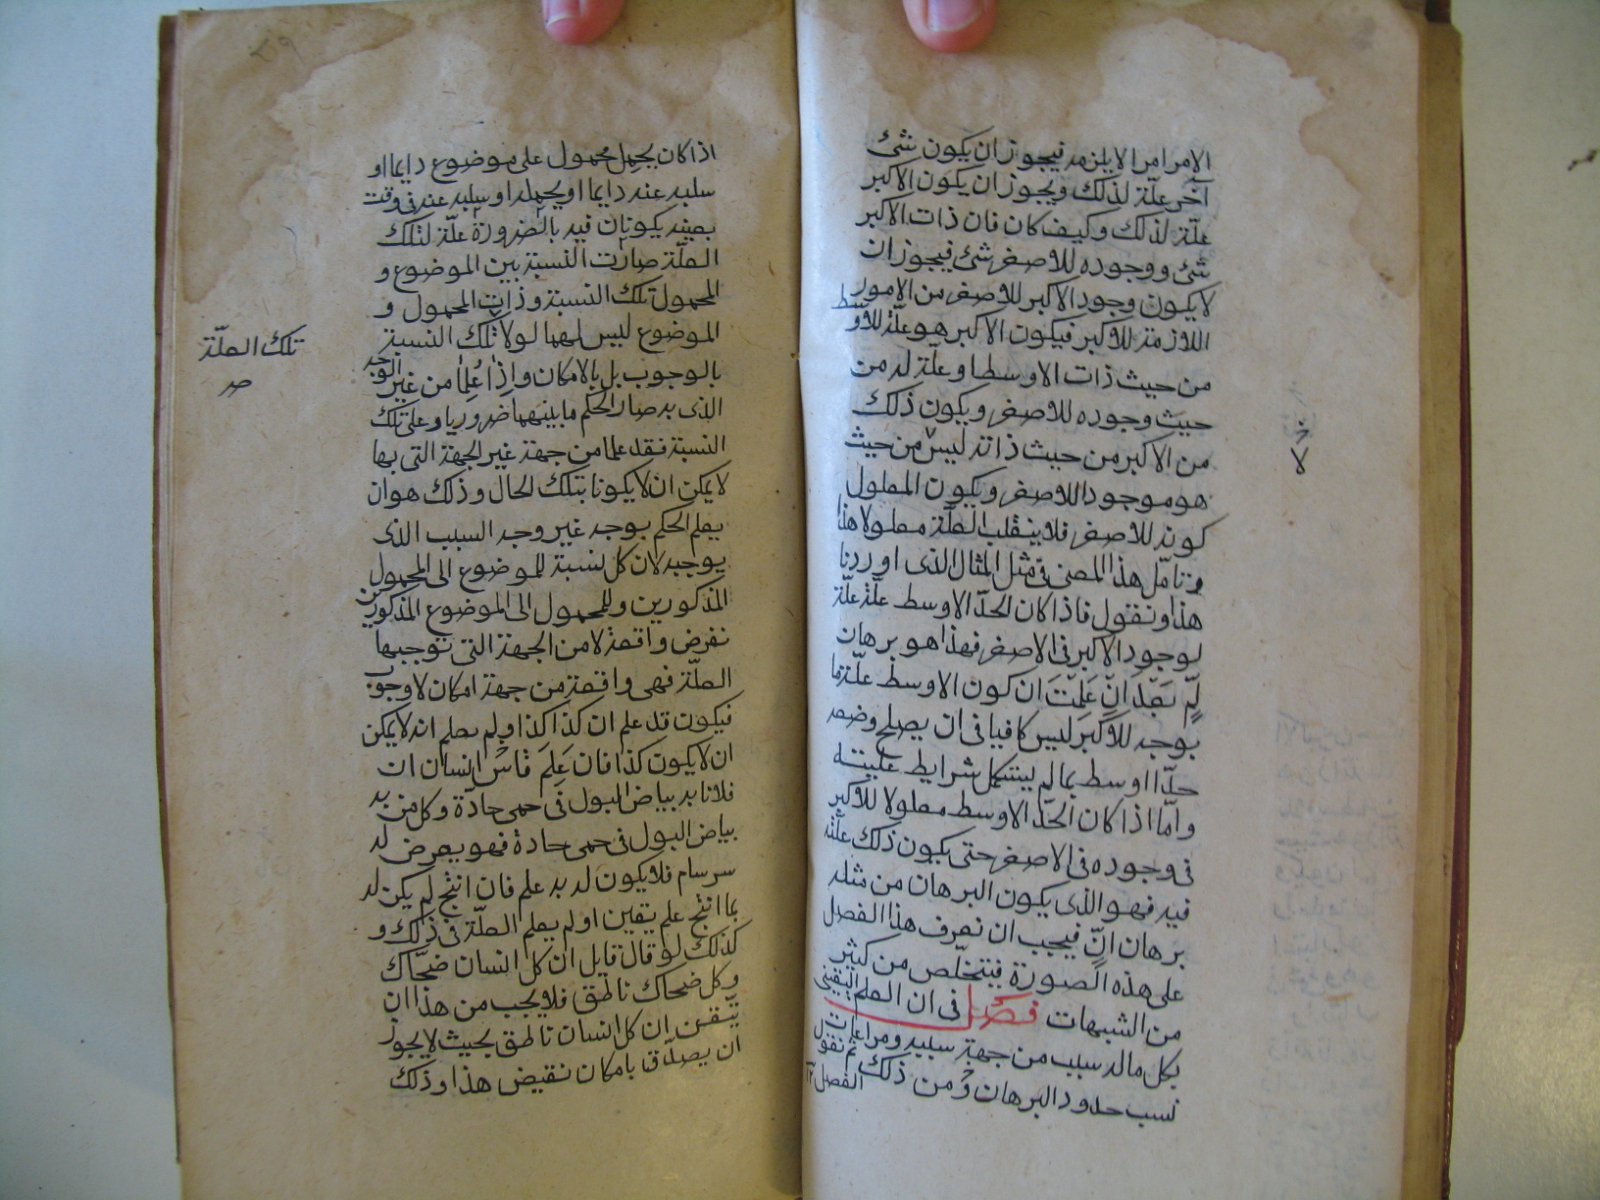 الامر امرا لا يلزمه فيجوز ان يكون شئ
آخر علّة لذلك ويجوز ان يكون الاكبر
علّة لذلك وكيف كان فان ذات الاكبر
شئ ووجوده للاصغر شئ فيجوز ان
لا يكون وجود الاكبر للاصغر من الامور
اللازمة للاكبر فيكون الاكبر هو علّة للاوسط
من حيث ذات الاوسط او علّة له من
حيث وجوده للاصغر ويكون ذلك
من الاكبر من حيث ذاته ليس من حيث
هو موجود اللاصغر ويكون المعلول
كونه للاصغر فلا ينقلب العلّة معلولا هذا
وتأمّل هذا المعنى فى مثل المثال الذى اوردنا
هذا ونقول فاذا كان الحدّ الاوسط علّة علّة
لوجود الاكبر فى الاصغر فهذا هو برهان
لِمّ بَعْدَ انْ عَلِمْتَ ان كون الاوسط علّة ما
بوجه للاكبر ليس كافيا فى ان يصلح وضعه
حدّا اوسط بما لم يستكمل شرايط عليته
وامّا اذا كان الحدّ الاوسط معلولا للاكبر
فى وجوده فى الاصغر حتى يكون ذلك علّة
فيه فهو الذى يكون البرهان من مثله
برهان انّ فيجب ان نعرف هذا الفصل
على هذه الصورة فيتخلّص من كثير
من الشبهات فصل فى ان العلم اليقينى
بكل ما له سبب من جهة سببه ومراعات
نسب حدود البرهان ومن ذلك ثم نقول
الفصل
لا
اذا كان يحمل محمول على موضوع دايما او
سلبه عنه دايما او يحمله او سلبه عنه فى وقت
بعينه يكونان فيه بالضرورة علّة لتلك
العلّة صارت النسبة بين الموضوع و
المحمول تلك النسبة وذات المحمول و
الموضوع ليس لهما لولا تلك النسبة
بالوجوب بل بالامكان واذا عُلما من غير الوجه
الذى به صار الحكم ما بينهما ضروريا وعلى تلك
النسبة فقد علما من جهة غير الجهة التى بها
لا يمكن ان لا يكونا بتلك الحال وذلك هو ان
يعلم الحكم بوجه غير وجه السبب الذى
يوجبه لان كل نسبة للموضوع الى المحمول
المذكورين وللمحمول الى الموضوع المذكورين
نفرض واقعة لا من الجهة التى توجبها
العلّة فهى واقعة من جهة امكان لا وجوب
فيكون قد علم ان كذا كذا ولم يعلم انه لا يمكن
ان لا يكون كذا فان عَلِمَ قاسَ انسان ان
فلانا به بياض البول فى حمى حادّة وكل من به
بياض البول فى حمى حادة فهو يعرض له
سرسام فلا يكون له به علم فان انتج لم يكن له
بما انتج علم يقين او لم يعلم العلّة فى ذلك و
كذلك لو قال قايل ان كل انسان ضحّاك
وكل ضحاك ناطق فلا يجب من هذا ان
يتيقن ان كل انسان ناطق بحيث لا يجوز
ان يصدّق بامكان نقيض هذا وذلك
تلك العلّة
صح